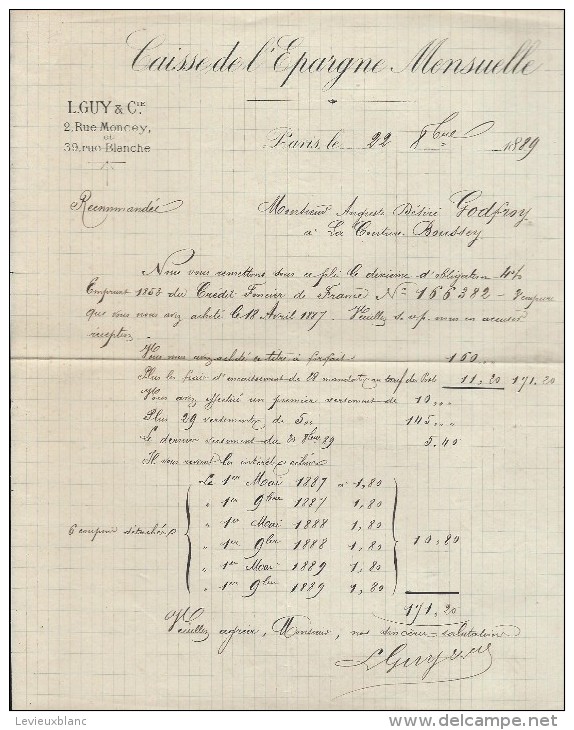 Caisse de l'Epargne Mensuelle
L. GUY & Cie
2, Rue Moncey,
et
39, rue Blanche
Paris, le 22 8bre 1889
Recommandée
Monsieur Auguste Désiré Godfroy
à La Couture-Boussey
Nous vous remettons sous ce pli le dixième d'obligation 4%
Emprunt 1863 du Crédit Foncier de France No 166382 -
que vous nous avez acheté le 18 Avril 1887. Veuillez s.v.p. nous en accuser
réception
Vous nous avez acheté ce titre à forfait 160 ...
Plus les frais d'encaissement de 28 mandats au tarif de Poste 11,20 171.20
Vous avez effectué un premier versement de 10 ...
Plus 29 versements de 5 ... 145 ...
Le dernier versement du 8bre 89 5.40
Il vous revient les intérêts
6 coupons détachés
Le 1er Mai 1887 à 1,80
" 1er 9bre 1887 1,80
" 1er Mai 1888 1,80
" 1er 9bre 1888 1,80
" 1er Mai 1889 1,80
" 1er 9bre 1889 1,80
10,80
171,20
Veuillez agréer, Monsieur, nos sincères salutations
L Guy & Cie
Levieuxblanc
delcampe.net